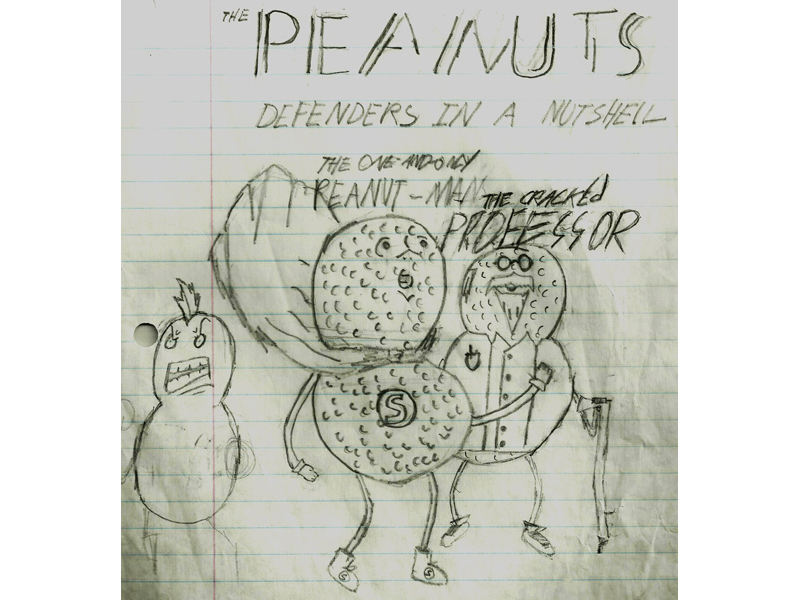 THE PEANUTS
DEFENDERS IN A NUTSHELL
THE ONE-AND-ONLY
PEANUT-MAN
THE CRACKEd
PROFESSOR
S